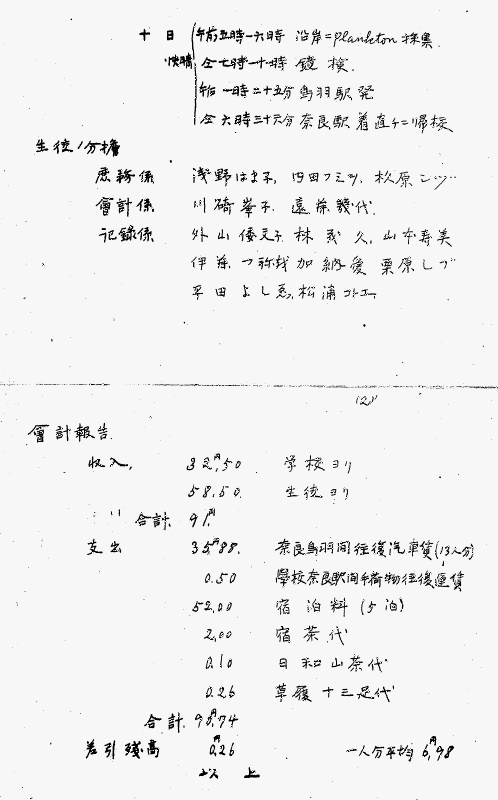 十日 午前五時一六時 沿岸=plankton採集.
快晴 仝七時一十一時 鏡検.
午后一時二十五分鳥羽駅発
仝六時三十六分奈良駅着直チニ帰校
生徒ノ分擔
庶務係 浅野はま子, 内田フミツ,
會計係 川碕峯子. 遠藤幾代.
記録係 外山 林 久, 山本寿美
伊藤 加納愛 栗原しづ
平田よし 松浦
(2)
會計報告.
収入. 32円.50 学校ヨリ
58.50. 生徒ヨリ
合計. 91円.
支出 35円88. 奈良鳥羽間往復汽車賃(13人分)
0.50 學校奈良駅間手荷物往復運賃
52.00 宿泊料(5泊)
2.00 宿茶代
0.10 日和山茶代
0.26 草履十三足代
合計. 90円.74
差引残高 0円.26 一人分平均 6円.98
以上